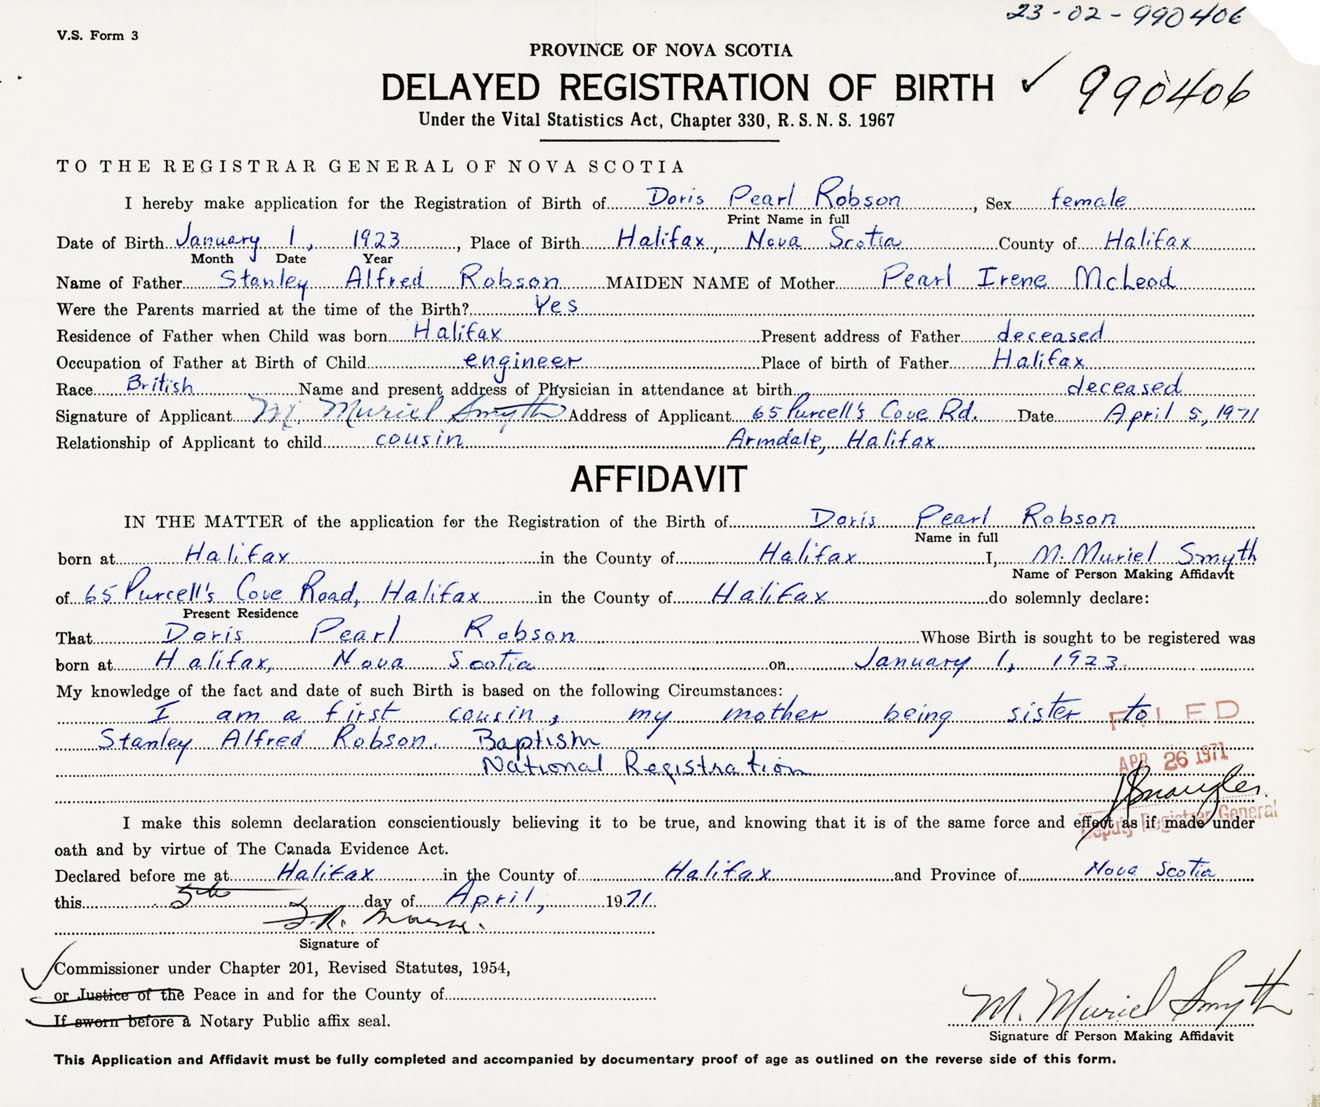 23-02-990406
V.S. Form 3
PROVINCE OF NOVA SCOTIA
DELAYED REGISTRATION OF BIRTH ✓ 990406
Under the Vital Statistics Act, Chapter 330, R. S. N. S. 1967
TO THE REGISTRAR GENERAL OF NOVA SCOTIA
I hereby make application for the Registration of Birth of Doris Pearl Robson, Sex female
Print Name in full
Date of Birth January 1, 1923, Place of Birth Halifax, Nova Scotia County of Halifax
Month Date Year
Name of Father Stanley Alfred Robson MAIDEN NAME of Mother Pearl Irene McLeod
Were the Parents married at the time of the Birth? Yes
Residence of Father when Child was born Halifax Present address of Father deceased
Occupation of Father at Birth of Child engineer Place of birth of Father Halifax
Race British Name and present address of Physician in attendance at birth deceased
Signature of Applicant M. Muriel Smyth Address of Applicant 65 Purcell's Cove Rd. Date April 5, 1971
Relationship of Applicant to child cousin Armdale, Halifax
AFFIDAVIT
IN THE MATTER of the application for the Registration of the Birth of Doris Pearl Robson
Name in full
born at Halifax in the County of Halifax I, M. Muriel Smyth
Name of Person Making Affidavit
of 65 Purcell's Cove Road, Halifax in the County of Halifax do solemnly declare:
Present Residence
That Doris Pearl Robson Whose Birth is sought to be registered was
born at Halifax, Nova Scotia on January 1, 1923.
My knowledge of the fact and date of such Birth is based on the following Circumstances:
I am a first cousin, my mother being sister to
FILED
Stanley Alfred Robson. Baptism
APR 26 1971
National Registration
Deputy Registrar General
I make this solemn declaration conscientiously believing it to be true, and knowing that it is of the same force and effect as if made under
oath and by virtue of The Canada Evidence Act.
Declared before me at Halifax in the County of Halifax and Province of Nova Scotia
this 5th day of April, 1971
Signature of
Commissioner under Chapter 201, Revised Statutes, 1954,
or Justice of the Peace in and for the County of
If sworn before a Notary Public affix seal.
M. Muriel Smyth
Signature of Person Making Affidavit
This Application and Affidavit must be fully completed and accompanied by documentary proof of age as outlined on the reverse side of this form.